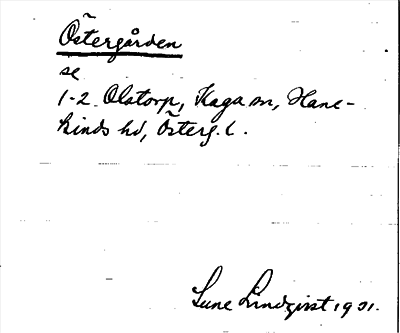 Östergården
se
1-2. Olstorp, Kaga sn, Hane-
kinds hd, Österg. l.
Sune Lindqvist 1931.